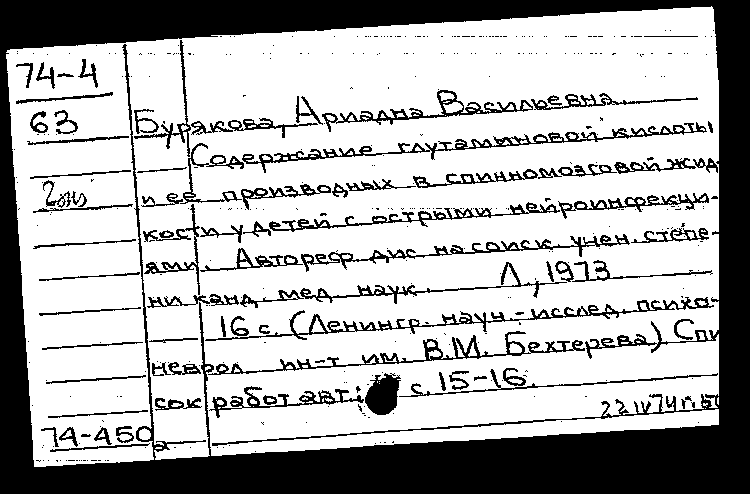 74-4
63
Бурякова, Ариадна Васильевна.
Содержание глутаминовой кислоты
2 экз
и её производных в спинномозговой жид-
кости у детей с острыми нейроинфекци-
ями. Автореф. дис. на соиск. учен. степе-
ни канд. мед. наук. Л., 1973
16 с. (Ленингр. науч.-исслед. психо-
неврол. ин-т им. В.М. Бехтерева) Спи
сок работ авт.: с. 15-16.
74-450
22 IV 74 п.